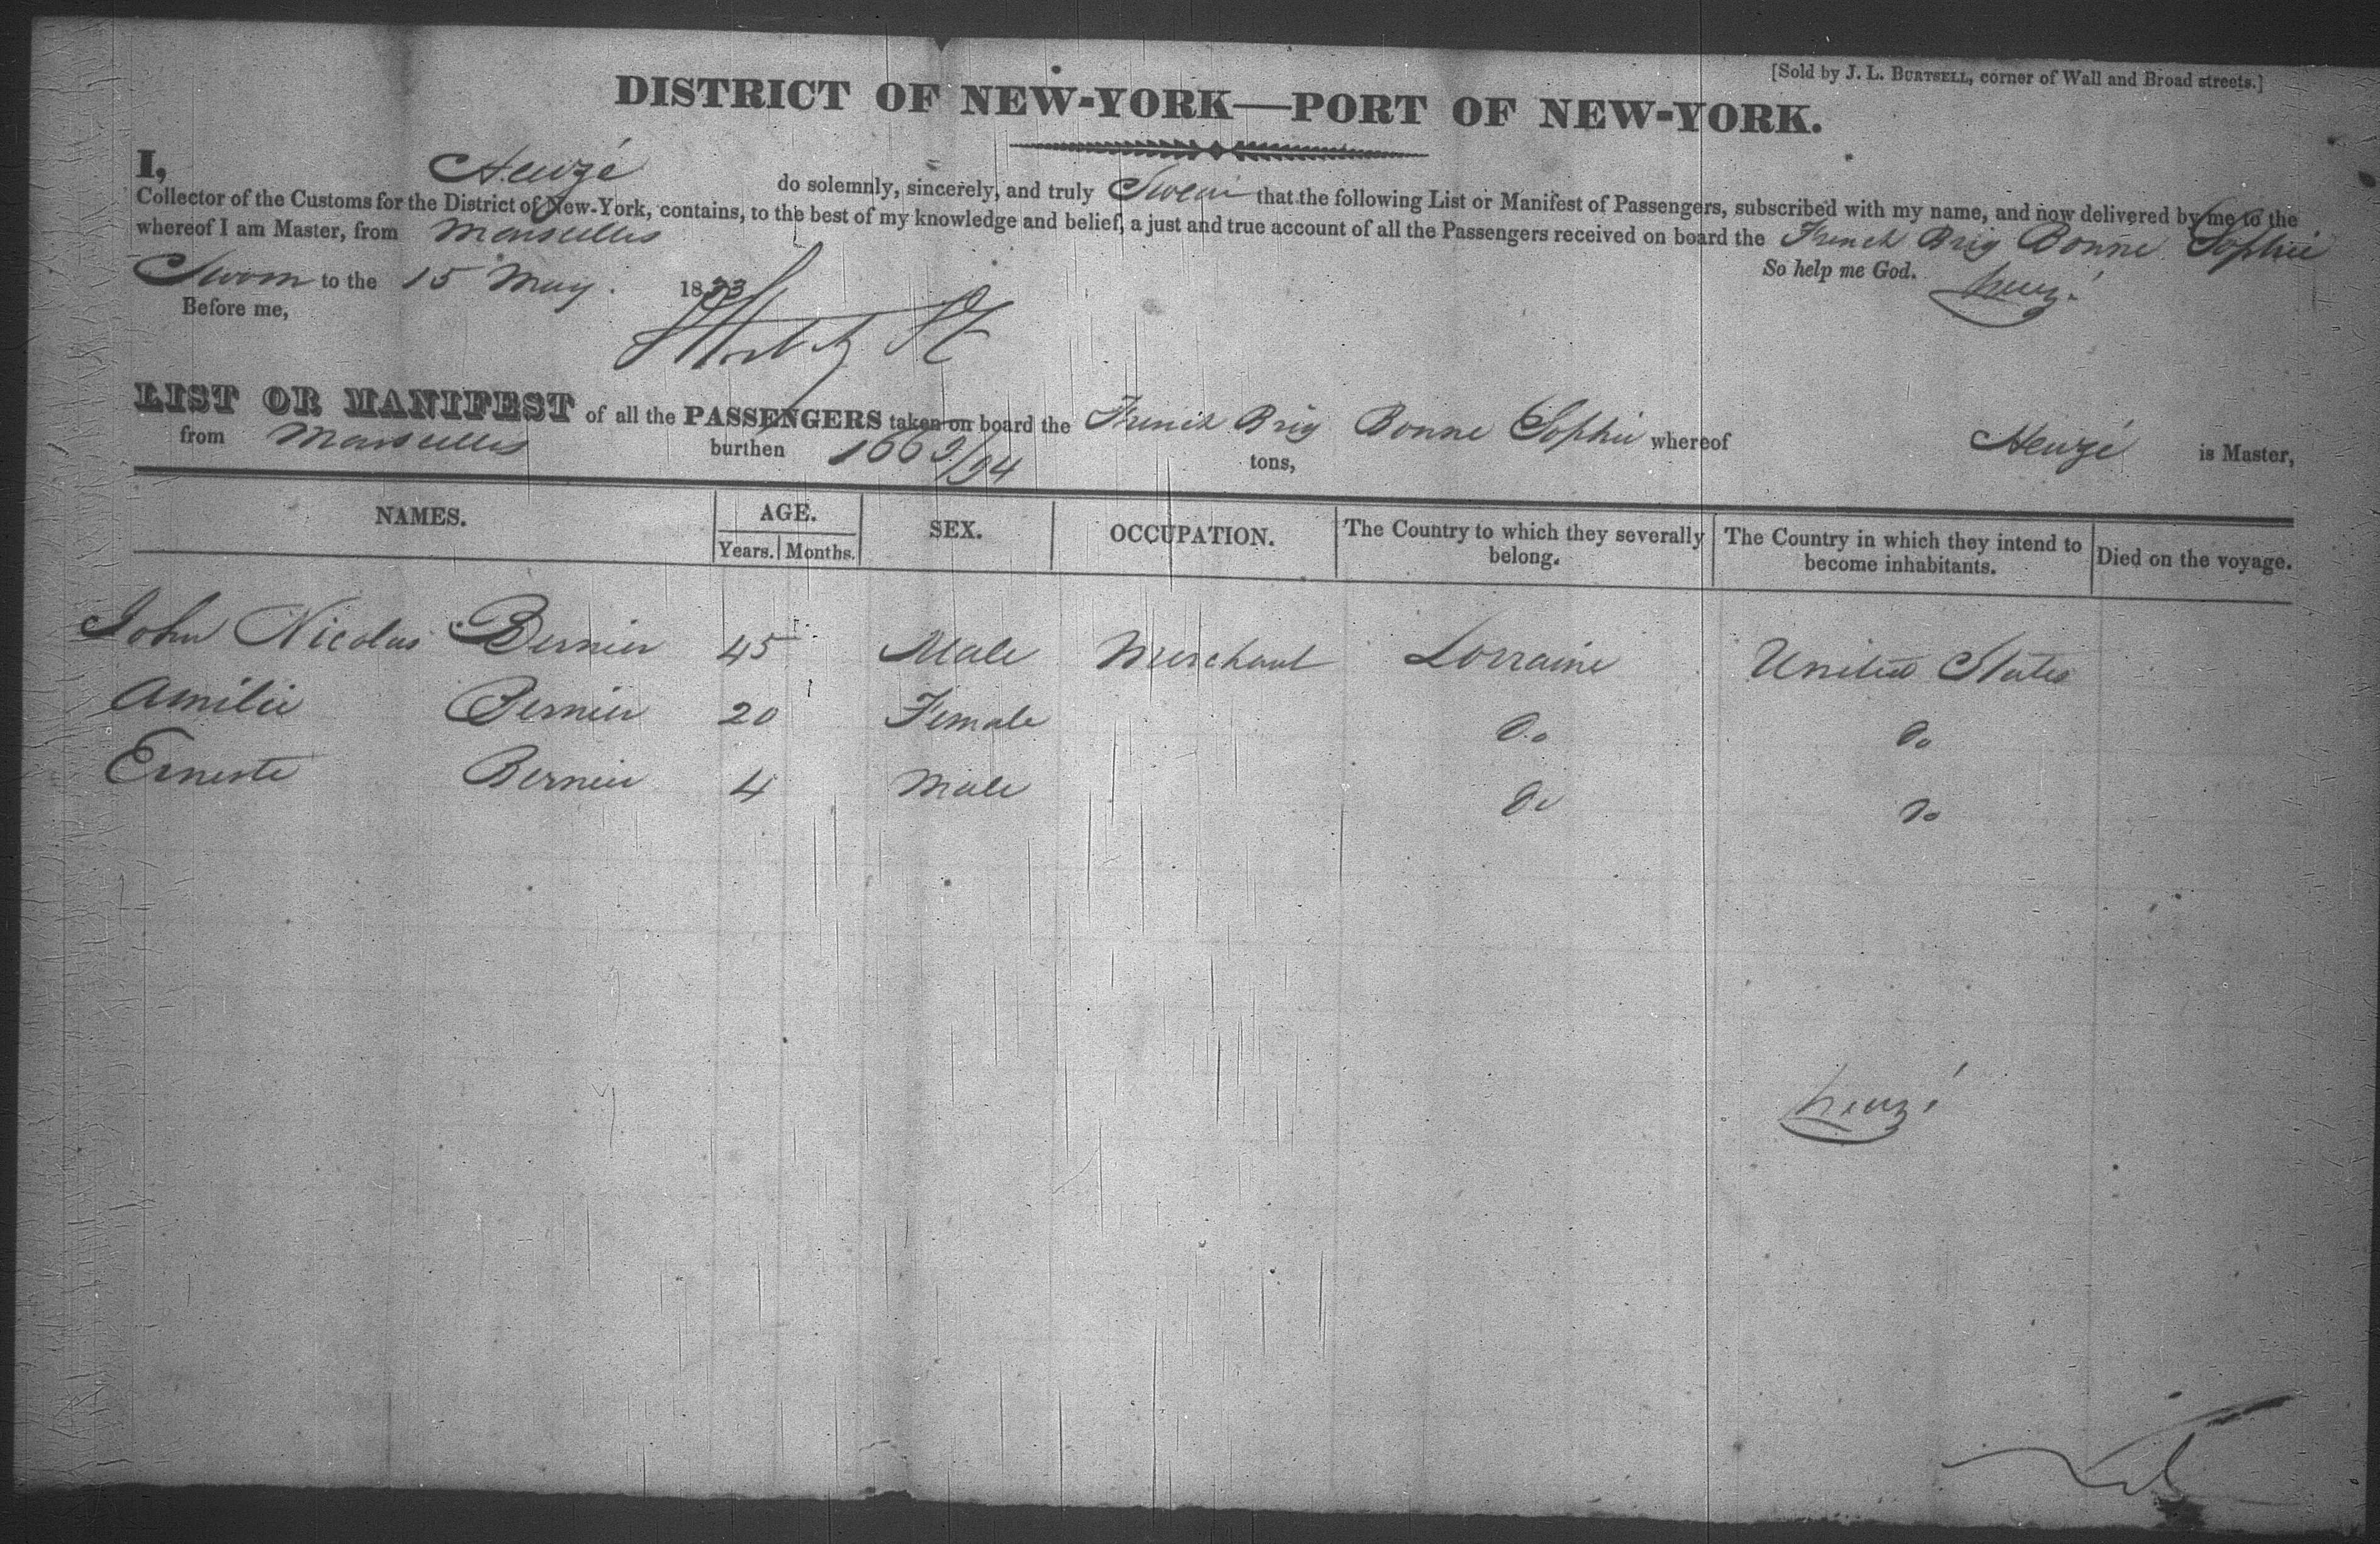 [Sold by J. L. BURTSELL, corner of Wall and Broad streets.]
DISTRICT OF NEW-YORK—PORT OF NEW-YORK.
I, Heuzé do solemnly, sincerely, and truly Swear that the following List or Manifest of Passengers, subscribed with my name, and now delivered by me to the
Collector of the Customs for the District of New-York, contains, to the best of my knowledge and belief, a just and true account of all the Passengers received on board the French Brig Bonne Sophie
whereof I am Master, from Marseilles
So help me God. heuzé
Sworn to the 15 May. 1833
Before me,
LIST OR MANIFEST of all the PASSENGERS taken on board the French Brig Bonne Sophie whereof Heuzé is Master,
from Marseilles burthen 166 9/94 tons,
NAMES. AGE. SEX. OCCUPATION. The Country to which they severally belong. The Country in which they intend to become inhabitants. Died on the voyage.
Years. Months.
John Nicolas Bernier 45 Male Merchant Lorraine United States
Amilie Bernier 20 Female Do Do
Erneste Bernier 4 Male Do Do
heuzé